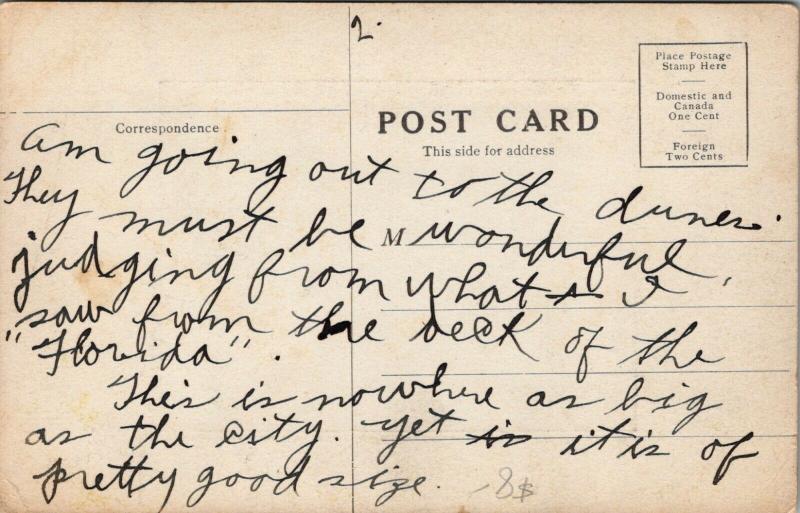 2.
Place Postage
Stamp Here
Domestic and
Canada
One Cent
Foreign
Two Cents
POST CARD
This side for address
Correspondence
M
am going out to the dunes.
They must be wonderful,
judging from what I
saw from the deck of the
"Florida".
This is nowhere as big
as the city. yet is it is of
pretty good size.
8$